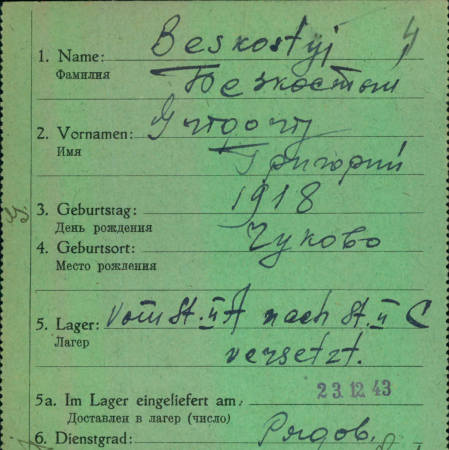 1. Name: Beskostyj
Фамилия Безкостый
2. Vornamen:
Имя Григорий
3. Geburtstag: 1918
День рождения
4. Geburtsort: Чуково
Место рожления
5. Lager: vom St. II A nach St. II C
Лагер versetzt.
5a. Im Lager eingeliefert am: 23.12.43
Доставлен в лагер (число)
6. Dienstgrad: Рядов.